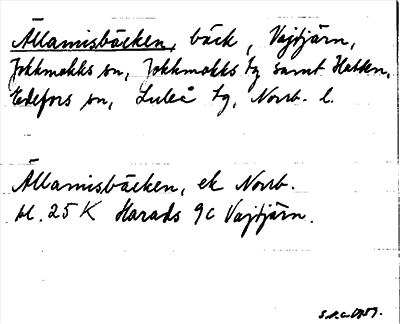 Ällamisbäcken, bäck, Vajtjärn,
Jokkmokks sn, Jokkmokks tg samt Hatten,
Edefors sn, Luleå tg, Norrb. l.
Ällamisbäcken, ek Norrb.
bl. 25 K Harads 9c Vajtjärn.